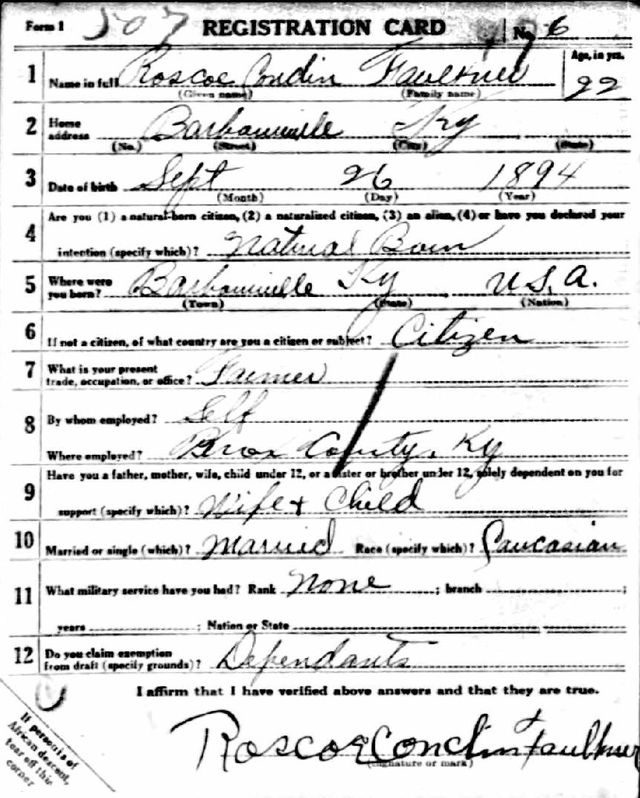 Form 1 507 REGISTRATION CARD No. 6
1 Name in full Roscoe Condin Faulkner Age, in yrs. 22
(Given name) (Family name)
2 Home address Barbourville Ky
(No.) (Street) (City) (State)
3 Date of birth Sept 26 1894
(Month) (Day) (Year)
4 Are you (1) a natural-born citizen, (2) a naturalized citizen, (3) an alien, (4) or have you declared your
intention (specify which)? Natural Born
5 Where were you born? Barbourville Ky U.S.A.
(Town) (State) (Nation)
6 If not a citizen, of what country are you a citizen or subject? Citizen
7 What is your present trade, occupation, or office? Farmer
8 By whom employed? Self
Where employed? County, Ky
9 Have you a father, mother, wife, child under 12, or a sister or brother under 12, solely dependent on you for
support (specify which)? Wife + Child
10 Married or single (which)? Married Race (specify which)? Caucasian
11 What military service have you had? Rank None ; branch ;
years ; Nation or State
12 Do you claim exemption from draft (specify grounds)? Dependants
I affirm that I have verified above answers and that they are true.
Roscoe Conclin Faulkner
(Signature or mark)
If person is of
African descent,
tear off this
corner